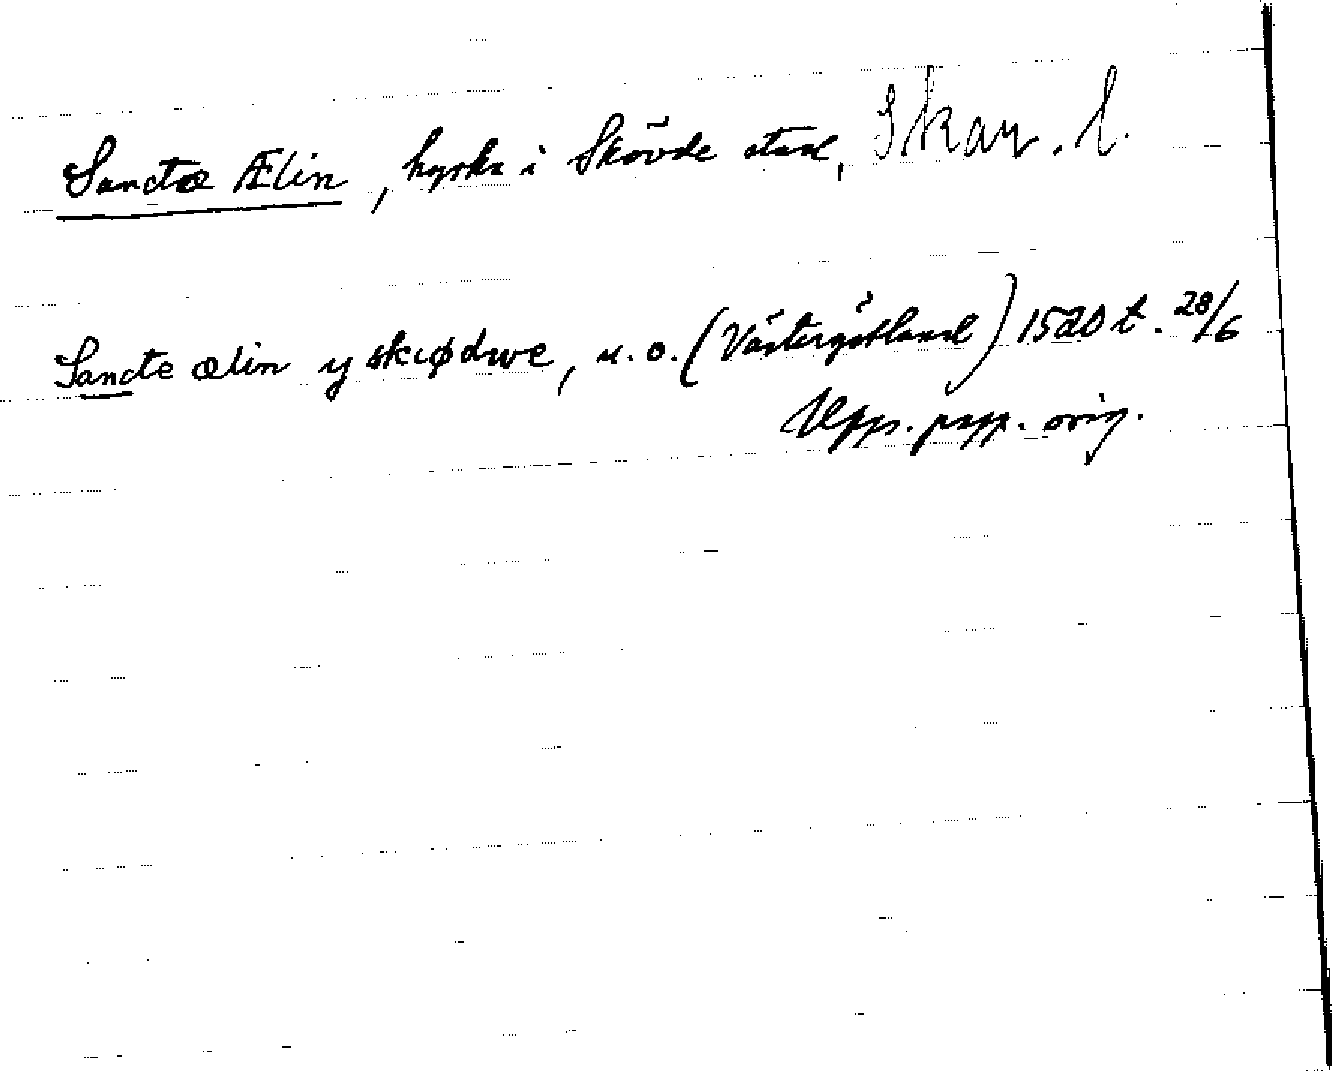 Sanctæ Ælin, kyrka i Skövde stad, Skar. l.
Sancte ælin y skiødwe, u. o. (Västergötland) 1520 t. 28/6
Upps. papp. orig.